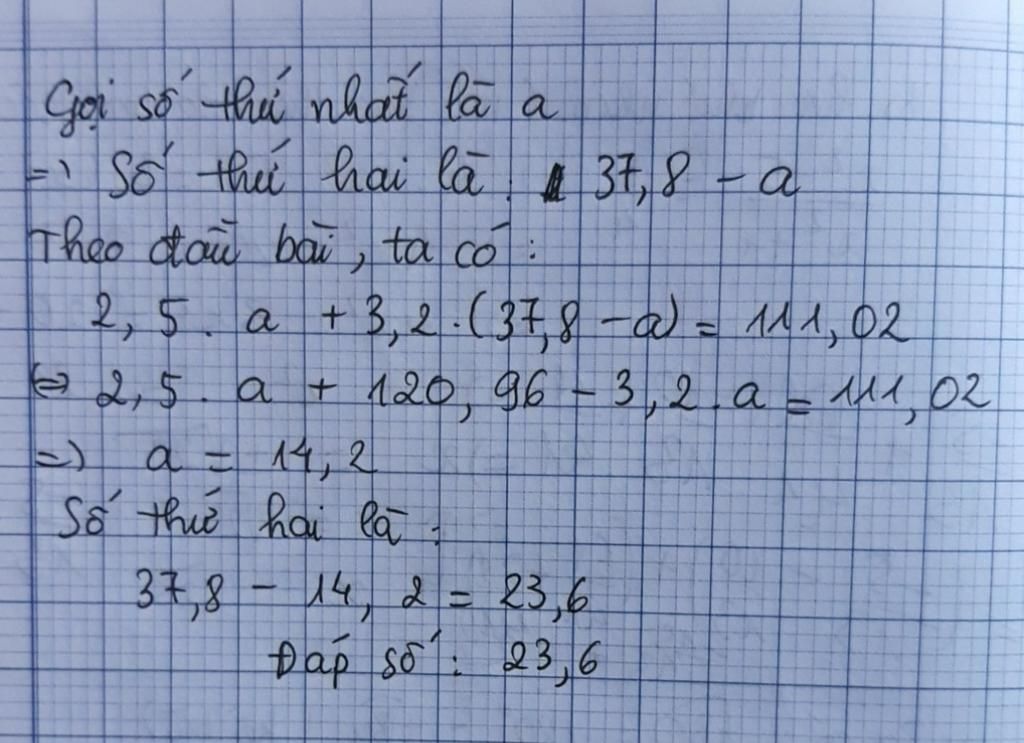 Gọi số thứ nhất là a
=> Số thứ hai là: 37,8 - a
Theo đầu bài, ta có:
2,5. a + 3,2.(37,8 - a) = 111,02
<=> 2,5. a + 120,96 - 3,2.a = 111,02
=> a = 14,2
Số thứ hai là:
37,8 - 14,2 = 23,6
Đáp số: 23,6